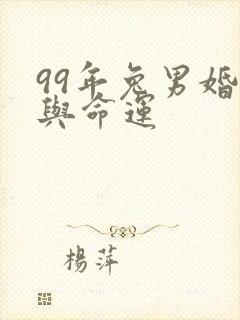 99年兔男婚
與命運
楊萍